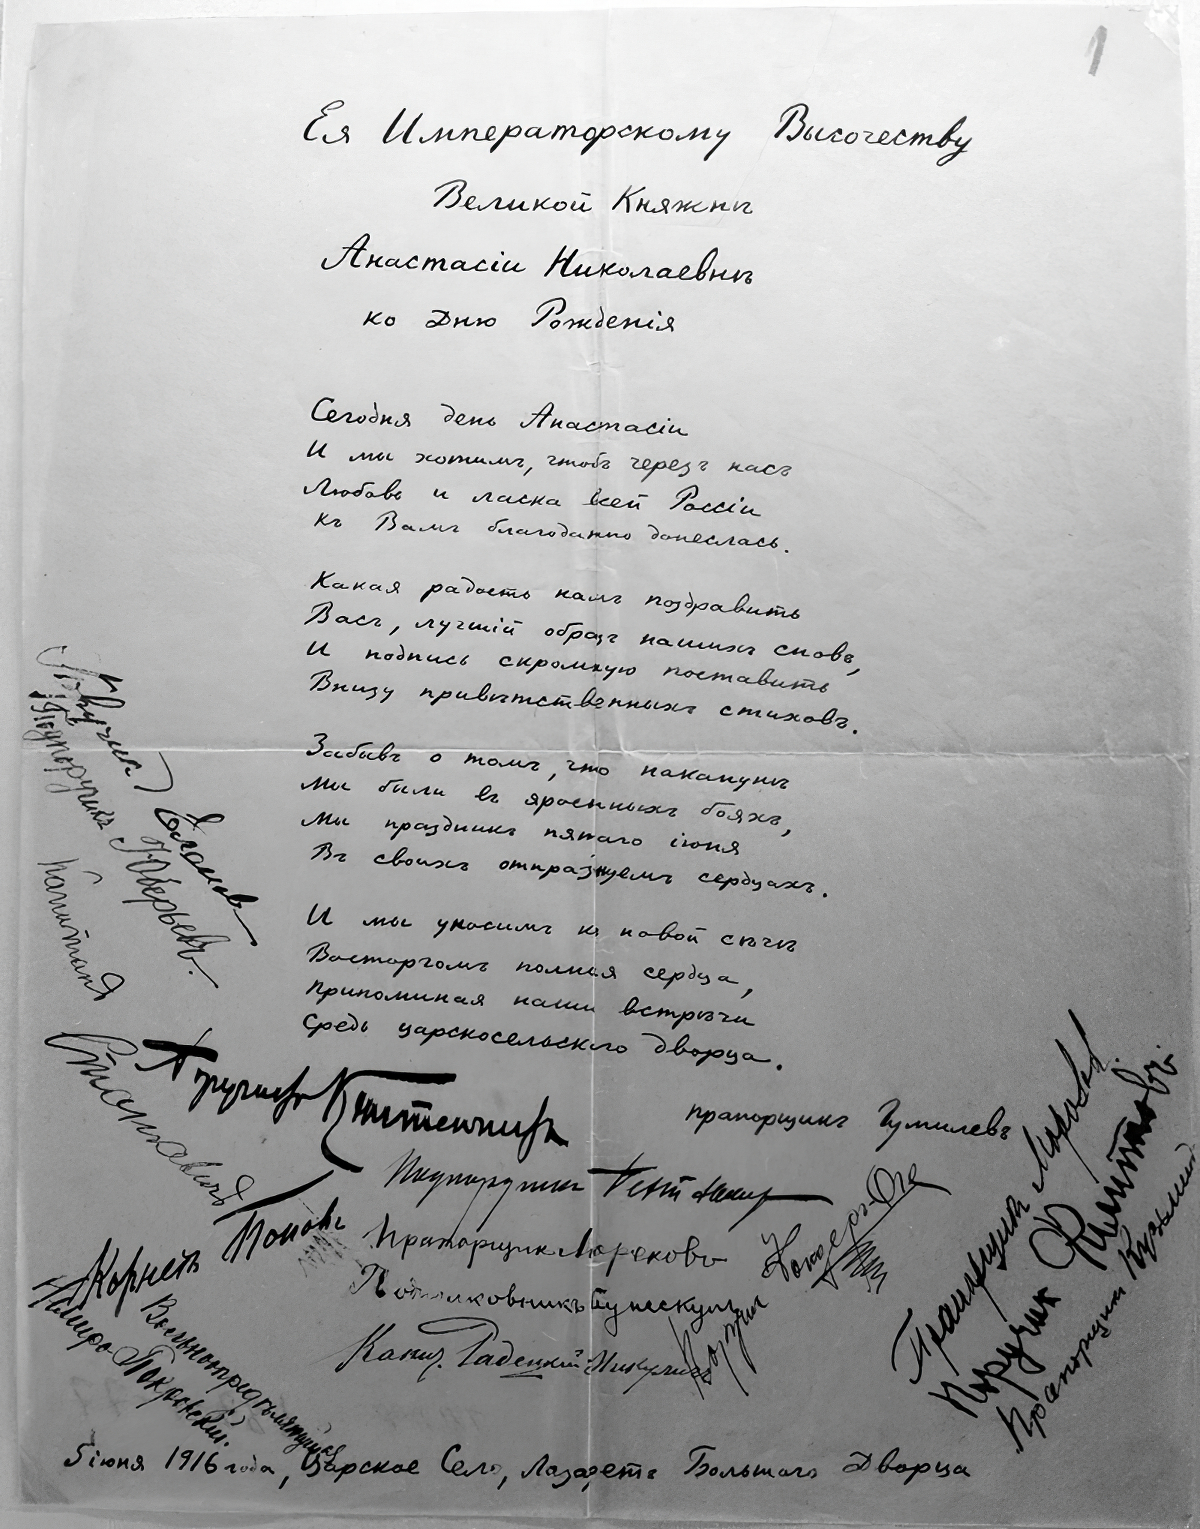 1
Ея Императорскому Высочеству
Великой Княжнѣ
Анастасіи Николаевнѣ
ко Дню Рожденія
Сегодня день Анастасіи
И мы хотимъ, чтобъ черезъ насъ
Любовь и ласка всей Россіи
Къ Вамъ благодатно донеслась.
Какая радость намъ поздравить
Васъ, лучшій образъ нашихъ сновъ,
И подпись скромную поставить
Внизу привѣтственныхъ стиховъ.
Забывъ о томъ, что наканунѣ
Мы были въ яростныхъ бояхъ,
Мы праздникъ пятаго іюня
Въ своихъ отпразнуемъ сердцахъ.
И мы уносимъ къ новой сѣчѣ
Восторгомъ полныя сердца,
Припоминая наши встрѣчи
Средь царскосельскаго дворца.
прапорщикъ Гумилевъ
Подпоручикъ
Юверьевъ.
Капитанъ
Станкевичъ
Поручикъ
Подпоручикъ
Прапорщик
Корнетъ Поповъ
Подполковникъ
Капит. Радецкій-Микуличъ
Вольноопредѣляющійся
Покровский.
Прапорщикъ
Поручик
Прапорщик Кузьмин
5 іюня 1916 года, Царское Село, Лазаретъ Большого Дворца